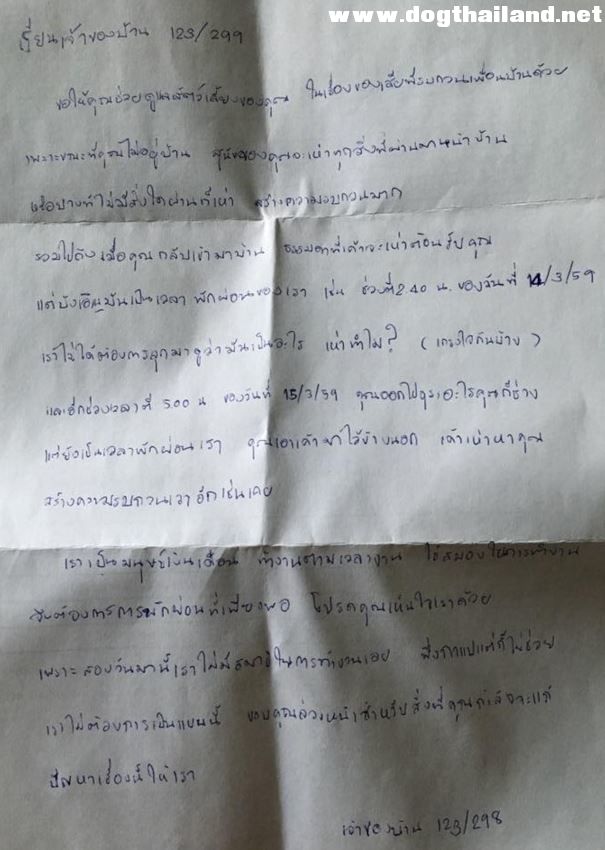 www.dogthailand.net
เรียนเจ้าของบ้าน 123/299
ขอให้คุณช่วยดูแลสัตว์เลี้ยงของคุณ ในเรื่องของเสียงที่รบกวนเพื่อนบ้านด้วย
เพราะขณะที่คุณไม่อยู่บ้าน สุนัขของคุณจะเห่าทุกสิ่งที่ผ่านมาหน้าบ้าน
หรือบางทีไม่มีสิ่งใดผ่านก็เห่า สร้างความรบกวนมาก
รวมไปถึงเมื่อคุณกลับเข้ามาบ้าน ธรรมดาที่เค้าจะเห่าต้อนรับคุณ
แต่บังเอิญมันเป็นเวลาพักผ่อนของเรา เช่น ช่วงตี 2.40 น. ของวันที่ 14/3/59
เราไม่ได้ต้องการลุกมาดูว่ามันเป็นอะไร เห่าทำไม? (เกรงใจกันบ้าง)
และอีกช่วงเวลาตี 5.00 น ของวันที่ 15/3/59 คุณออกไปธุระอะไรคุณก็ช่าง
แต่ยังเป็นเวลาพักผ่อนเรา คุณเอาเค้ามาไว้ข้างนอก เค้าเห่าหาคุณ
สร้างความรบกวนเราอีกเช่นเคย
เราเป็นมนุษย์เงินเดือน ทำงานตามเวลางาน ใช้สมองในการทำงาน
จึงต้องการการพักผ่อนที่เพียงพอ โปรดคุณเห็นใจเราด้วย
เพราะสองวันมานี้เราไม่มีสมาธิในการทำงานเลย พึ่งกาแฟแต่ก็ไม่ช่วย
เราไม่ต้องการเป็นแบบนี้ ขอบคุณล่วงหน้าสำหรับสิ่งที่คุณกำลังจะแก้
ปัญหาเรื่องนี้ให้เรา
เจ้าของบ้าน 123/298